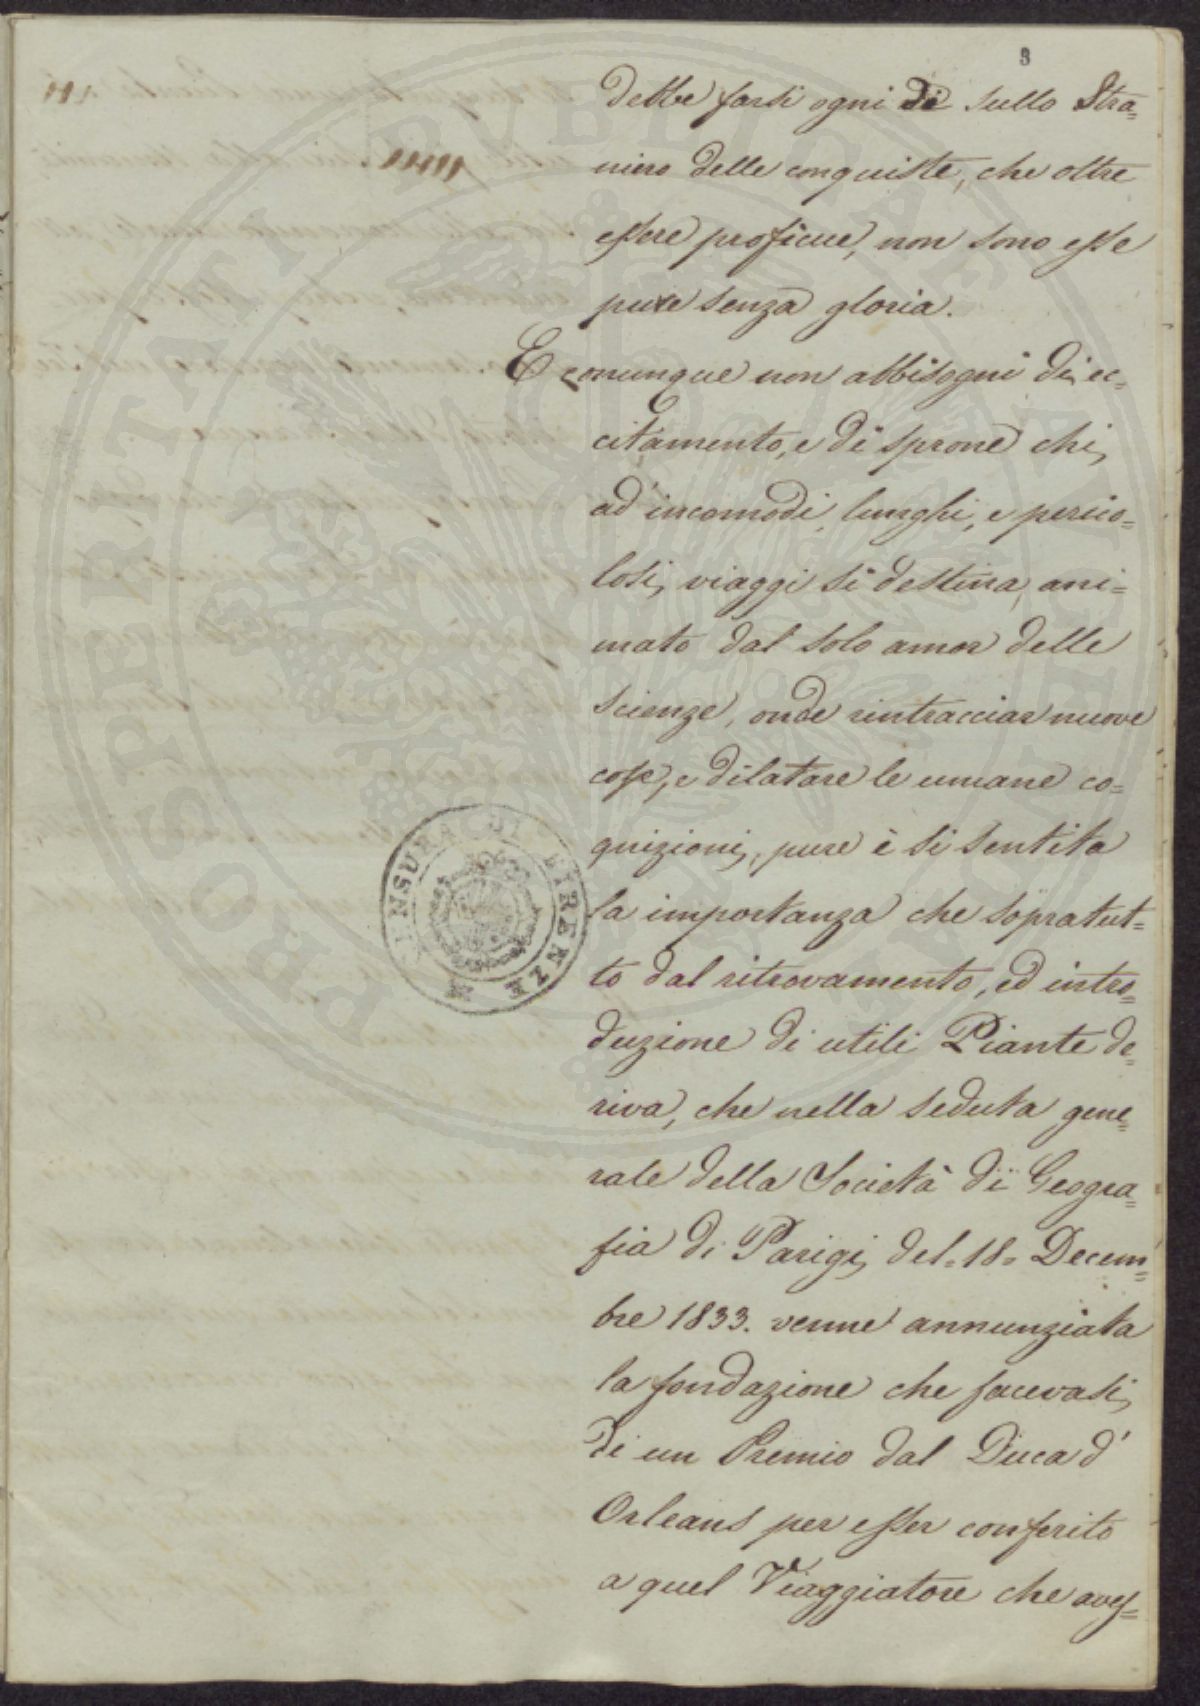 3
debbe farsi ogni dì sullo Stra=
niero delle conquiste, che oltre
essere proficue, non sono esse
pure senza gloria.
E comunque non abbisogni di ec=
citamento, e di sprone chi
ad incomodi, lunghi, e perico=
losi viaggi si destina, ani=
mato dal solo amor delle
scienze, onde rintracciar nuove
cose, e dilatare le umane co=
gnizioni, pure è si sentita
la importanza che sopratut=
to dal ritrovamento, ed intro=
duzione di utili Piante de=
riva, che nella seduta gene=
rale della Società di Geogra=
fia di Parigi del=18= Decem=
bre 1833. venne annunziata
la fondazione che facevasi
di un Premio dal Duca d'
Orleans per esser conferito
a quel Viaggiatore che aves=
CENSURA DI FIRENZE
PROSPERITATI PVBLICAE AVGENDAE